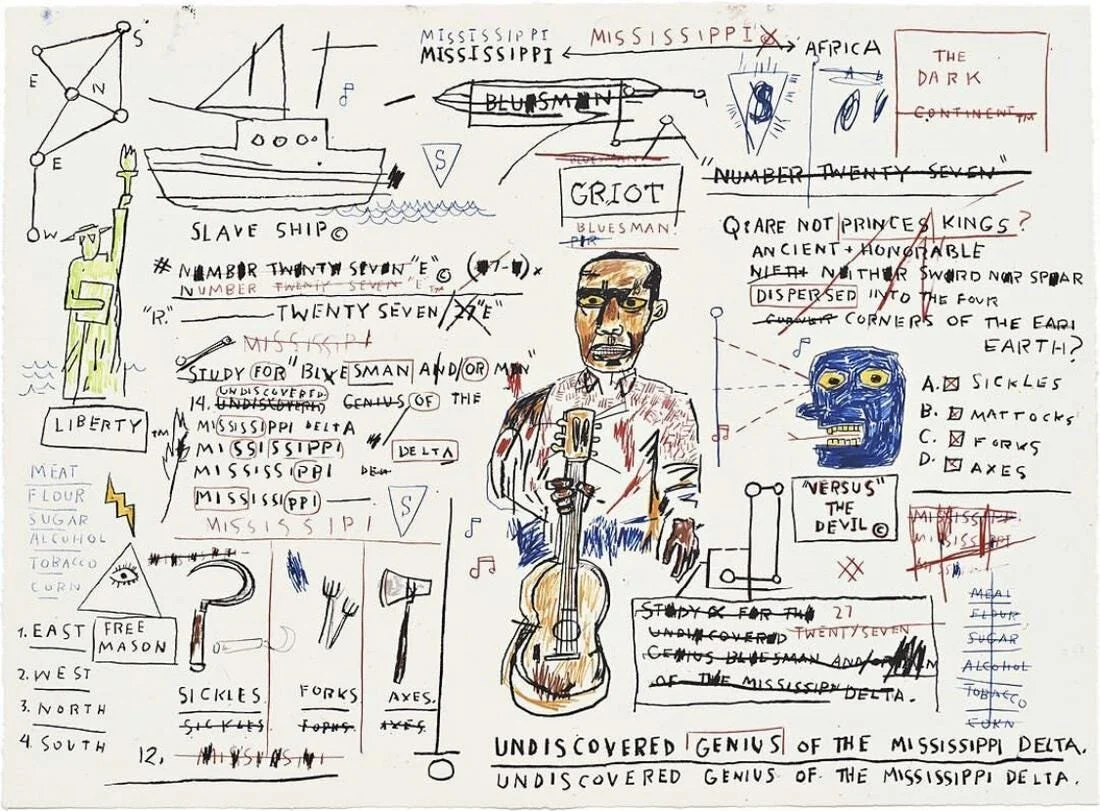 S
E
N
E
W
MISSISSIPPI
MISSISSIPPI
MISSISSIPPI
AFRICA
THE
DARK
CONTINENT™
BLUESMAN
S
A B
S
BLUESMAN
GRIOT
BLUESMAN
"NUMBER TWENTY SEVEN"
SLAVE SHIP©
# NUMBER TWENTY SEVEN "E"©
NUMBER TWENTY SEVEN "E™
"R." TWENTY SEVEN/27"E"
MISSISSIPI
STUDY FOR "BLUESMAN AND/OR MEN"
UNDISCOVERED
14. UNDISCOVERED GENIUS OF THE
MISSISSIPPI DELTA
MISSISSIPPI DELTA
MISSISSIPPI
MISSISSIPPI
MISSISSIPI
S
LIBERTY™
MEAT
FLOUR
SUGAR
ALCOHOL
TOBACCO
CORN
1. EAST
2. WEST
3. NORTH
4. SOUTH
FREE
MASON
SICKLES.
SICKLES.
FORKS
FORKS.
AXES.
AXES.
12.
Q: ARE NOT PRINCES KINGS?
ANCIENT + HONORABLE
NIETH NEITHER SWORD NOR SPEAR
DISPERSED INTO THE FOUR
CORNER CORNERS OF THE EART
EARTH?
A. SICKLES
B. MATTOCKS
C. FORKS
D. AXES
"VERSUS"
THE
DEVIL©
MISSISSIPPI
MISSISSIPPI
MEAL
FLOUR
SUGAR
ALCOHOL
TOBACCO
CORN
STUDY FOR THE 27
UNDISCOVERED TWENTY/SEVEN
GENIUS BLUESMAN AND/OR
OF THE MISSISSIPPI DELTA.
UNDISCOVERED GENIUS OF THE MISSISSIPPI DELTA.
UNDISCOVERED GENIUS OF THE MISSISSIPPI DELTA.